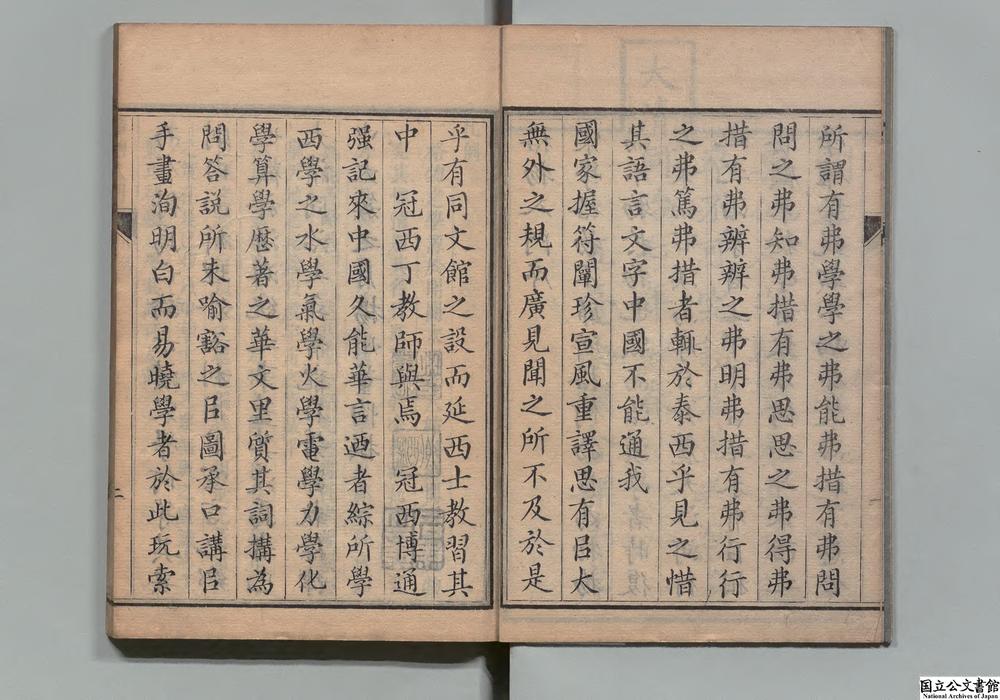 所謂有弗學學之弗能弗措有弗問
問之弗知弗措有弗思思之弗得弗
措有弗辨辨之弗明弗措有弗行行
之弗篤弗措者輒於泰西乎見之惜
其語言文字中國不能通我
國家握符闡珍宣風重譯思有㠯大
無外之規而廣見聞之所不及於是
乎有同文館之設而延西士教習其
中 冠西丁教師與焉 冠西博通
强記來中國久能華言迺者綜所學
西學之水學氣學火學電學力學化
學算學歷著之華文里質其詞搆為
問答說所未喻豁之㠯圖承口講㠯
手畫洵明白而易曉學者於此玩索
二
国立公文書館
National Archives of Japan